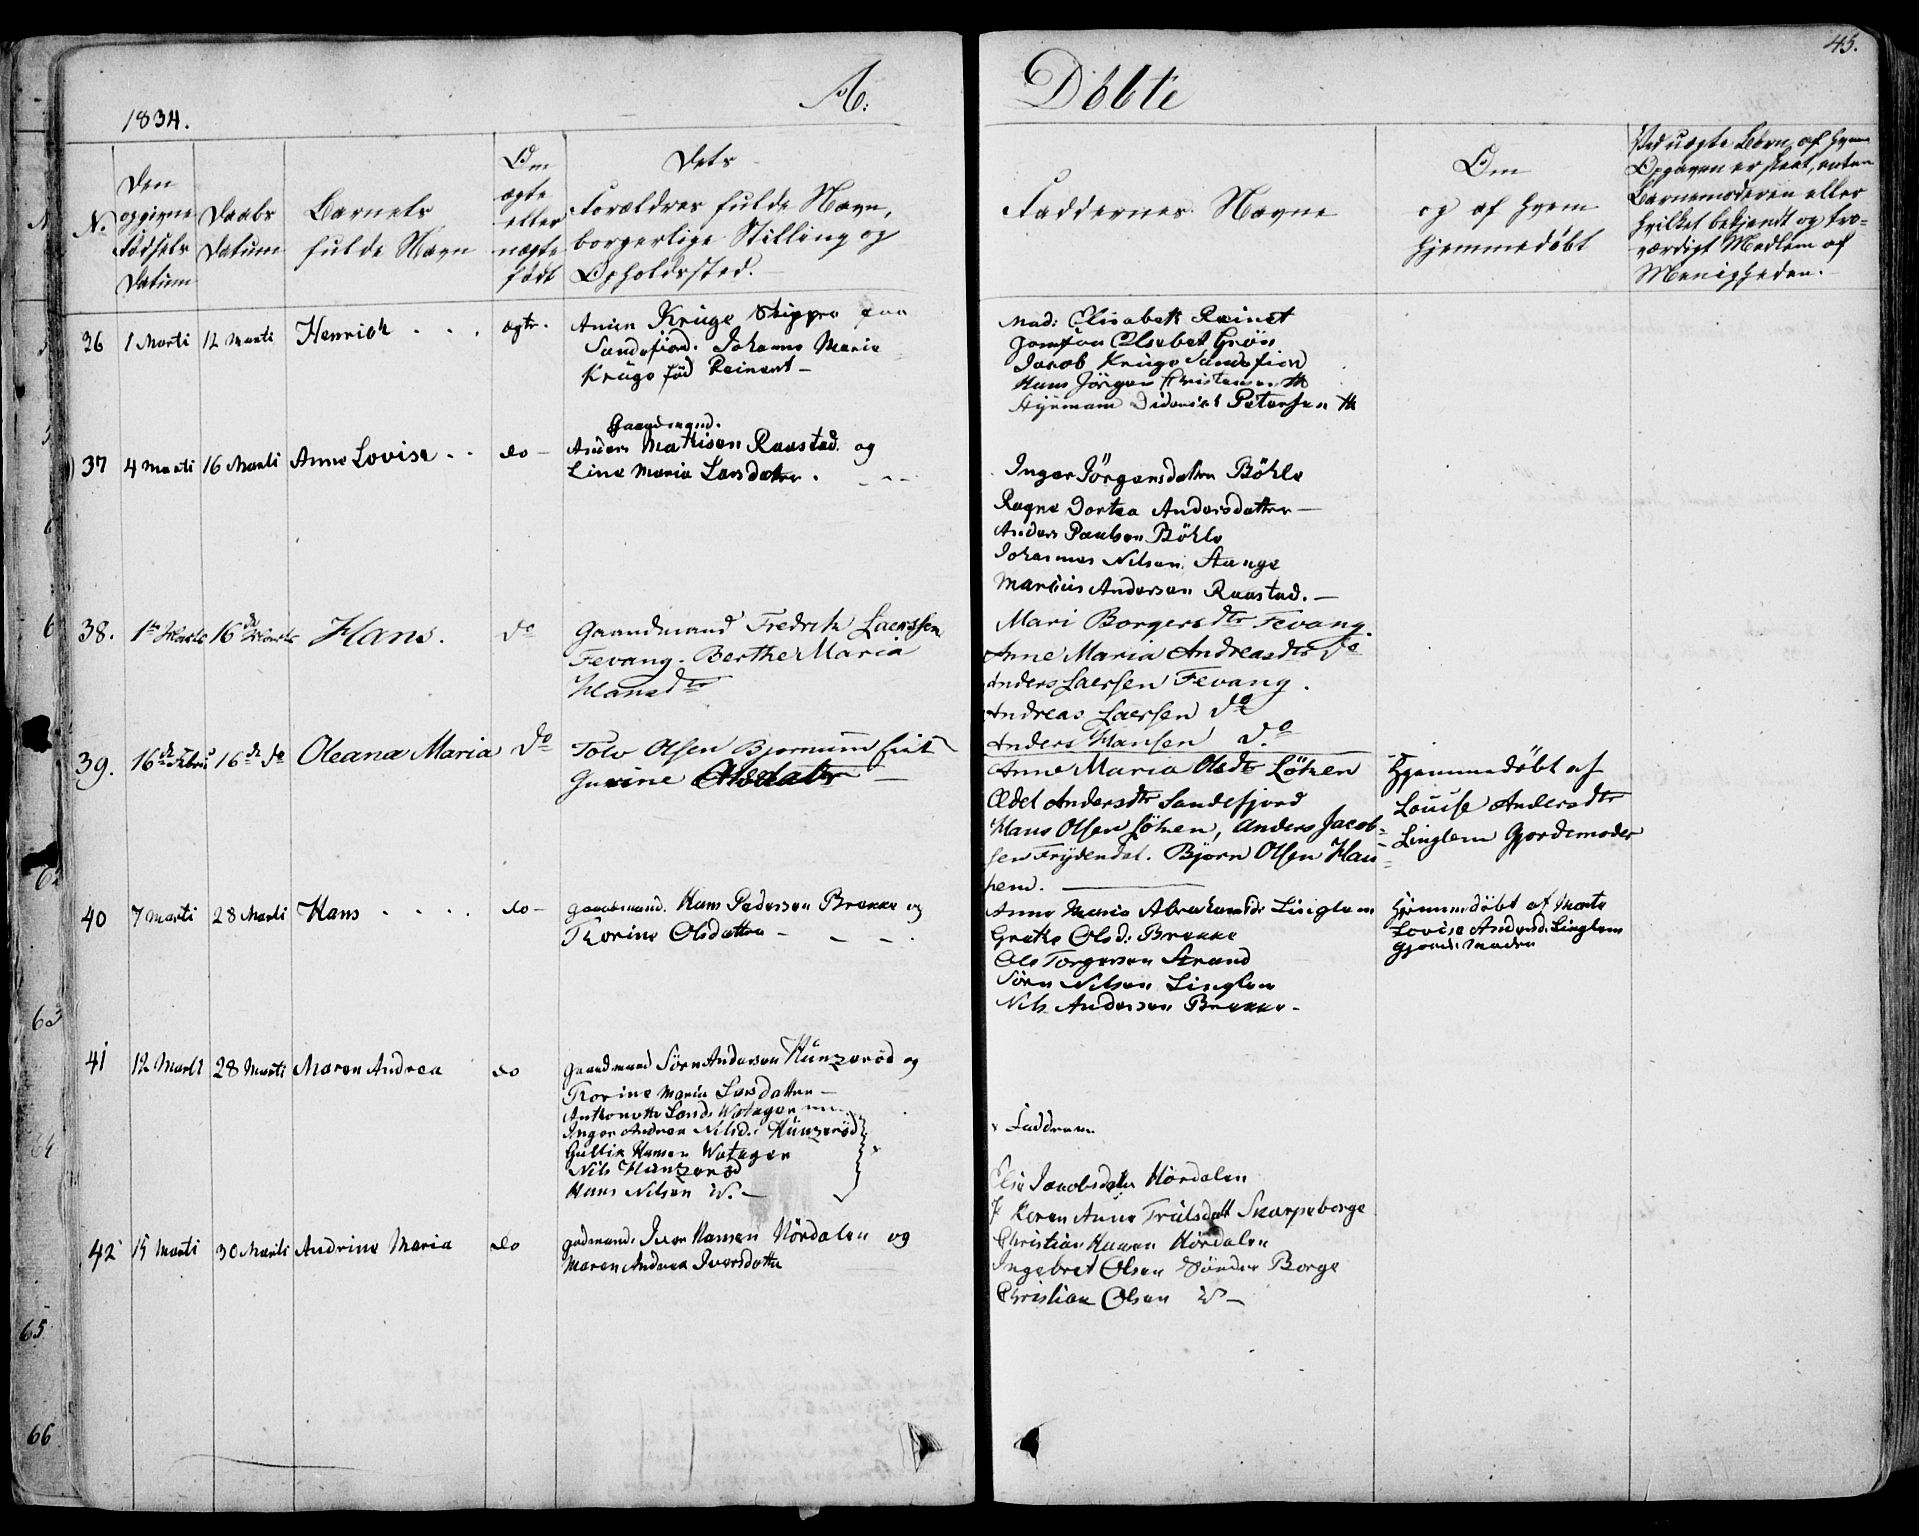 45.
1834.
A:
Döbte
N.
Den opgivne Födsels Datum
Daabs Datum
Barnets fulde Navn
Om ægte eller uægte född
Dets Forældres fulde Navn, borgerlige Stilling og Opholdssted.
Faddernes Navne
Om og af Hvem hjemmedöbt
Ved uægte Börn, af Hvem Opgaven er skeet, enten Barnemoderen eller hvilket bekjendt og troværdigt Medlem af Menigheden.
36 1 Marti 12 Marti Henrich ægte.
Krüge Skipper paa
Sandefiord. Johanne Marie
Krüge född Reinert
Mad: Elisabeth Reinert
Jomfru Elsebet Grön
Jacob Krüge Sandefiord
Hans Jörgen Christensen
Diderich Petersen
37 4 Marti 16 Marti Anne Lovise do
Gaardmand.
Anders Mathisen Raastad og
Line Maria Larsdatter.
Inger Jörgensdatter Böhle
Ragne Dortea Andersdatter
Anders Paulsen Böhle
Johannes Nilsen Stange
Marcius Andersen Raastad.
38. 1st Marts 16de Marts Hans. do
Gaardmand Fredrik Laerssen
Fevang. Berthe Maria
Hansdtr
Mari Borgersdtr Fevang.
Anne Maria Andreasdtr do
Anders Laersen Fevang.
Andreas Laersen do
Anders Hansen do
39. 16de Febru 16de do Oleana Maria do
Tolv Olsen Bjornum
Gurine Olsdatter
Anne Maria Olsdtr Löken
Edel Andersdtr Sandefjord
Hans Olsen Löken, Anders Jacob-
sen Frydendal. Björn Olsen Hau-
kem.
Hjemmedöbt af
Louise Andersdtr
Linglem Gjordemoder
40 7 Marti 28 Marti Hans do
gaardmand. Hans Pedersen Brekke og
Thorine Olsdatter
Anne Maria Abrahamsdr Linglem
Grethe Olsd: Brekke
Ole Torgersen Strand
Sörn Nilsen Linglem
Nils Andersen Brekke
Hjemmedöbt af Marte
Lovise Andersd: Linglem
Gjordemoder
41 12 Marti 28 Marti Maren Andrea do
gaardmand Sörn Andersen Hünzeröd og
Thorine Maria Larsdatter
Anthonette Larsd: Watager
Inger Andrea Nilsd: Hünzeröd
Gullik Hansen Watager
Nils Hünzeröd
Hans Nilsen
Faddrene
42 15 Marti 30 Marti Andrine Maria do
gadmand: Iver Hansen Hördalen og
Maren Andrea Iversdatter
Elie Jacobsdatter Hördalen
Karen Anne Trulsdatt Skarpeborge
Christian Hansen Hördalen
Ingebret Olsen Sönder Borge
Christian Olsen
63
64
65
66